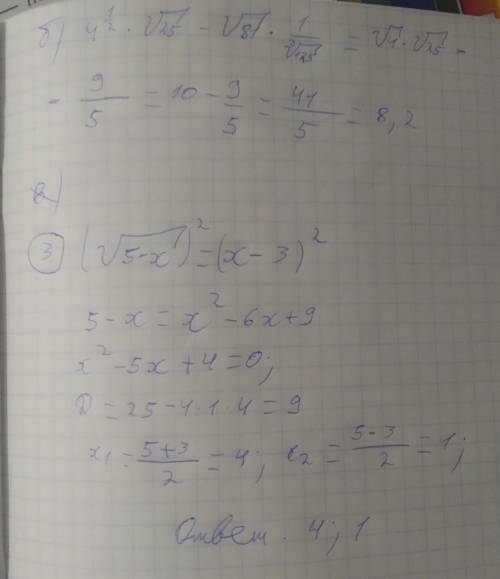 б) 4^{\frac{1}{2}} · √25 - √81 · \frac{1}{∛125} = √4 · √25 -
- \frac{9}{5} = 10 - \frac{9}{5} = \frac{41}{5} = 8,2
в)
③ (√5-x)² = (x - 3)²
5 - x = x² - 6x + 9
x² - 5x + 4 = 0;
D = 25 - 4·1·4 = 9
x₁ = \frac{5+3}{2} = 4; x₂ = \frac{5-3}{2} = 1;
Ответ. 4; 1